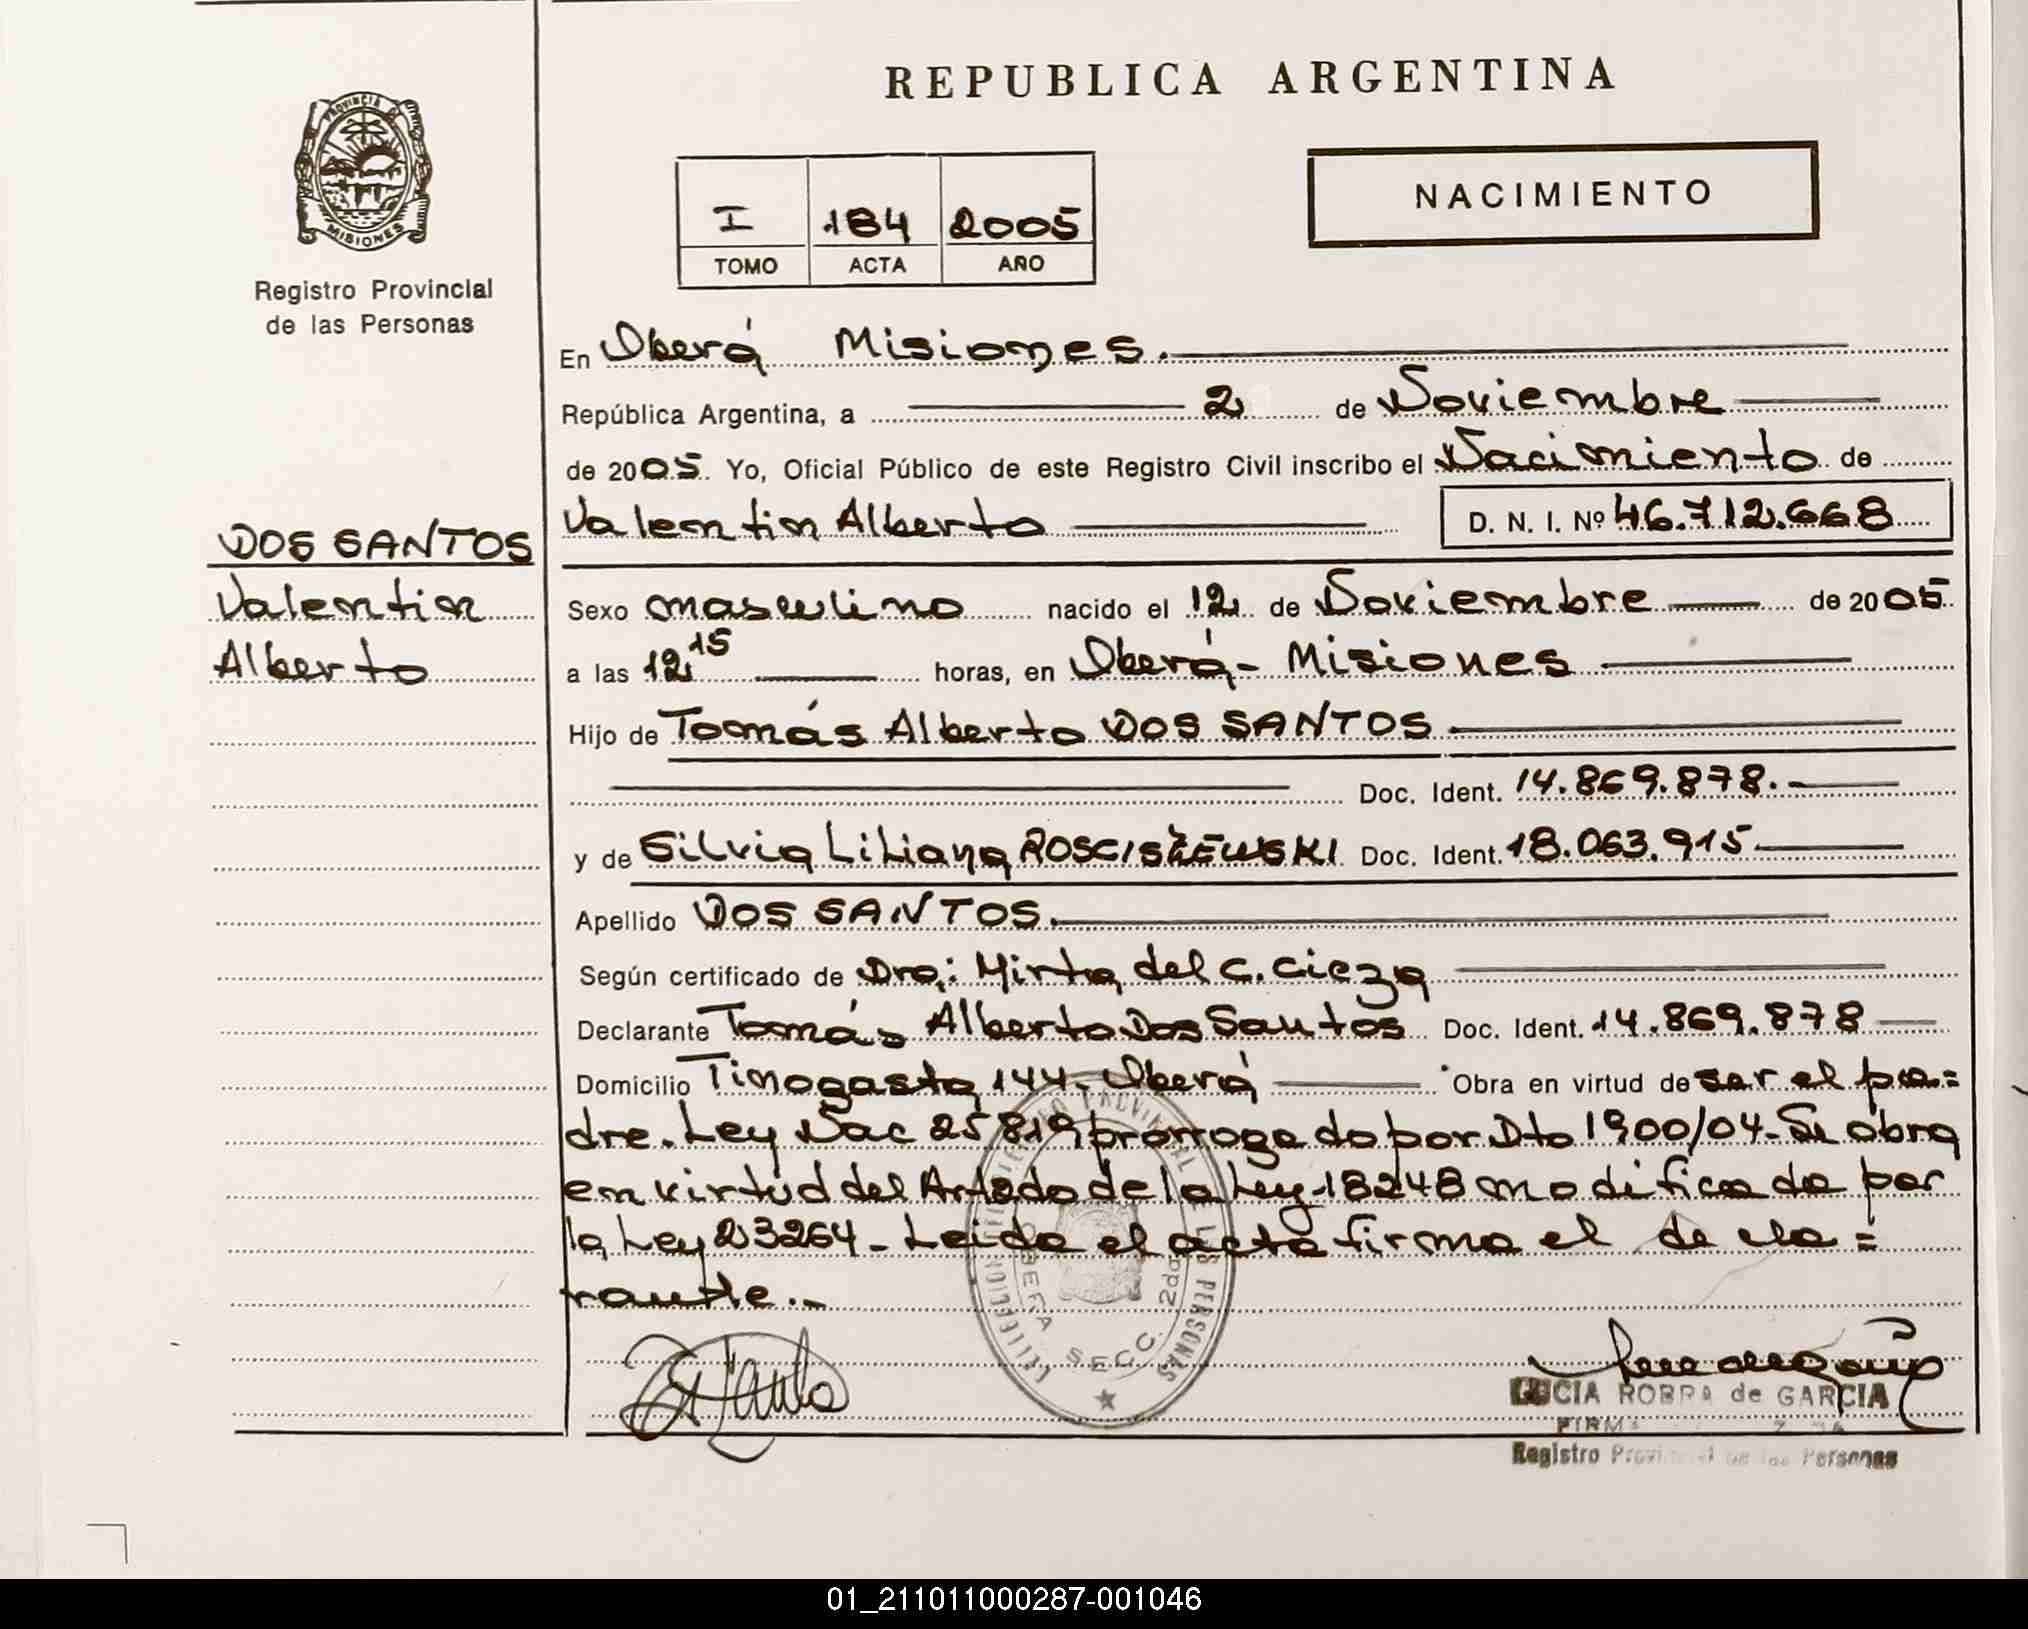 REPUBLICA ARGENTINA
PROVINCIA DE
MISIONES
Registro Provincial
de las Personas
I 184 2005
TOMO ACTA AÑO
NACIMIENTO
En Oberá Misiones.
República Argentina, a 2 de Noviembre
de 2005. Yo, Oficial Público de este Registro Civil inscribo el Nacimiento de
Valentin Alberto D. N. I. Nº 46.712.668
DOS SANTOS
Valentin
Alberto
Sexo masculino nacido el 12 de Noviembre de 2005
a las 12 15 horas, en Oberá - Misiones
Hijo de Tomás Alberto DOS SANTOS
Doc. Ident. 14.869.878.
y de Silvia Liliana ROSCISZEWSKI Doc. Ident. 18.063.915
Apellido DOS SANTOS.
Según certificado de Dra: Mirta del C. Cieza
Declarante Tomás Alberto Dos Santos Doc. Ident. 14.869.878
Domicilio Tinogasta 144 - Oberá Obra en virtud de ser el pa=
dre. Ley Nac 25819 prorrogado por Dto 1900/04 - Se obra
en virtud del Art 2do de la Ley 18248 modificado por
la Ley 23264 - Leida el acta firma el decla=
rante.-
REGISTRO PROVINCIAL DE LAS PERSONAS
OBERA SECC. 2da
LUCIA ROBRA de GARCIA
Registro Provincial de las Personas
01_211011000287-001046